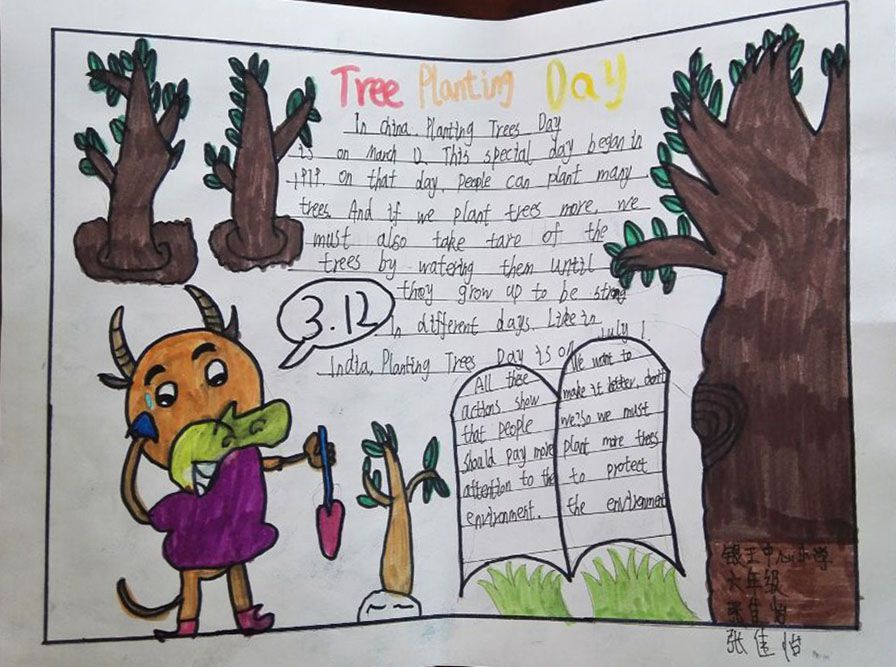 Tree Planting Day
In China, Planting Trees Day
is on March 12. This special day began in
1979. on that day, people can plant many
trees. And if we plant trees more, we
must also take tare of the
trees by watering them until
they grow up to be strong
3.12
In different days. Like in
India, Planting Trees Day is on July 1.
All these
actions show
that people
should pay more
attention to the
environment.
We want to
make it better, don't
we?So we must
plant more trees
to protect
the environment
银王中心小学
六年级
张佳怡
张佳怡